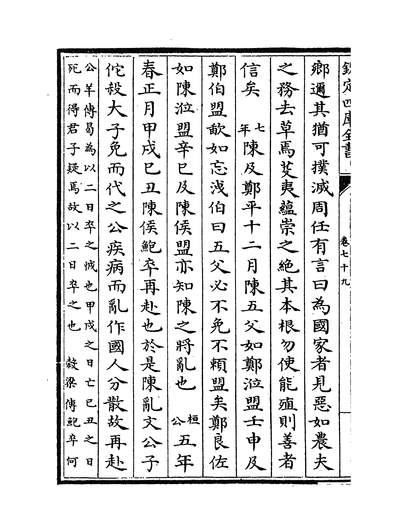 欽定四庫全書
卷七十九
鄉邇其猶可撲滅周任有言曰為國家者見惡如農夫
之務去草焉芟夷蘊崇之絕其本根勿使能殖則善者
信矣七年陳及鄭平十二月陳五父如鄭涖盟壬申及
鄭伯盟歃如忘洩伯曰五父必不免不賴盟矣鄭良佐
如陳涖盟辛巳及陳侯盟亦知陳之將亂也桓公五年
春正月甲戌巳丑陳侯鮑卒再赴也於是陳亂文公子
佗殺大子免而代之公疾病而亂作國人分散故再赴
公羊傳曷為以二日卒之怴也甲戌之日亡己丑之日
死而得君子疑焉故以二日卒之也　穀梁傳鮑卒何